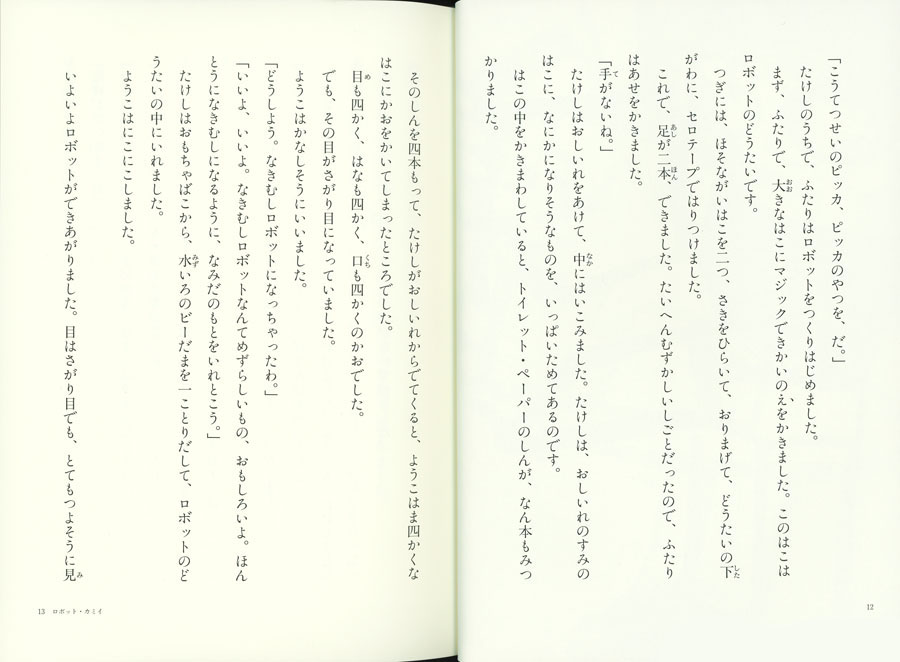 「こうてつせいのピッカ、ピッカのやつを、だ。」
たけしのうちで、ふたりはロボットをつくりはじめました。
まず、ふたりで、大きなはこにマジックできかいのえをかきました。このはこは
ロボットのどうたいです。
つぎには、ほそながいはこを二つ、さきをひらいて、おりまげて、どうたいの下
がわに、セロテープではりつけました。
これで、足が二本、できました。たいへんむずかしいしごとだったので、ふたり
はあせをかきました。
「手がないね。」
たけしはおしいれをあけて、中にはいこみました。たけしは、おしいれのすみの
はこに、なにかになりそうなものを、いっぱいためてあるのです。
はこの中をかきまわしていると、トイレット・ペーパーのしんが、なん本もみつ
かりました。
12
そのしんを四本もって、たけしがおしいれからでてくると、ようこはま四かくな
はこにかおをかいてしまったところでした。
目も四かく、はなも四かく、口も四かくのかおでした。
でも、その目がさがり目になっていました。
ようこはかなしそうにいいました。
「どうしよう。なきむしロボットになっちゃったわ。」
「いいよ、いいよ。なきむしロボットなんてめずらしいもの、おもしろいよ。ほん
とうになきむしになるように、なみだのもとをいれとこう。」
たけしはおもちゃばこから、水いろのビーだまを一ことりだして、ロボットのど
うたいの中にいれました。
ようこはにこにこしました。
いよいよロボットができあがりました。目はさがり目でも、とてもつよそうに見
13 ロボット・カミイ